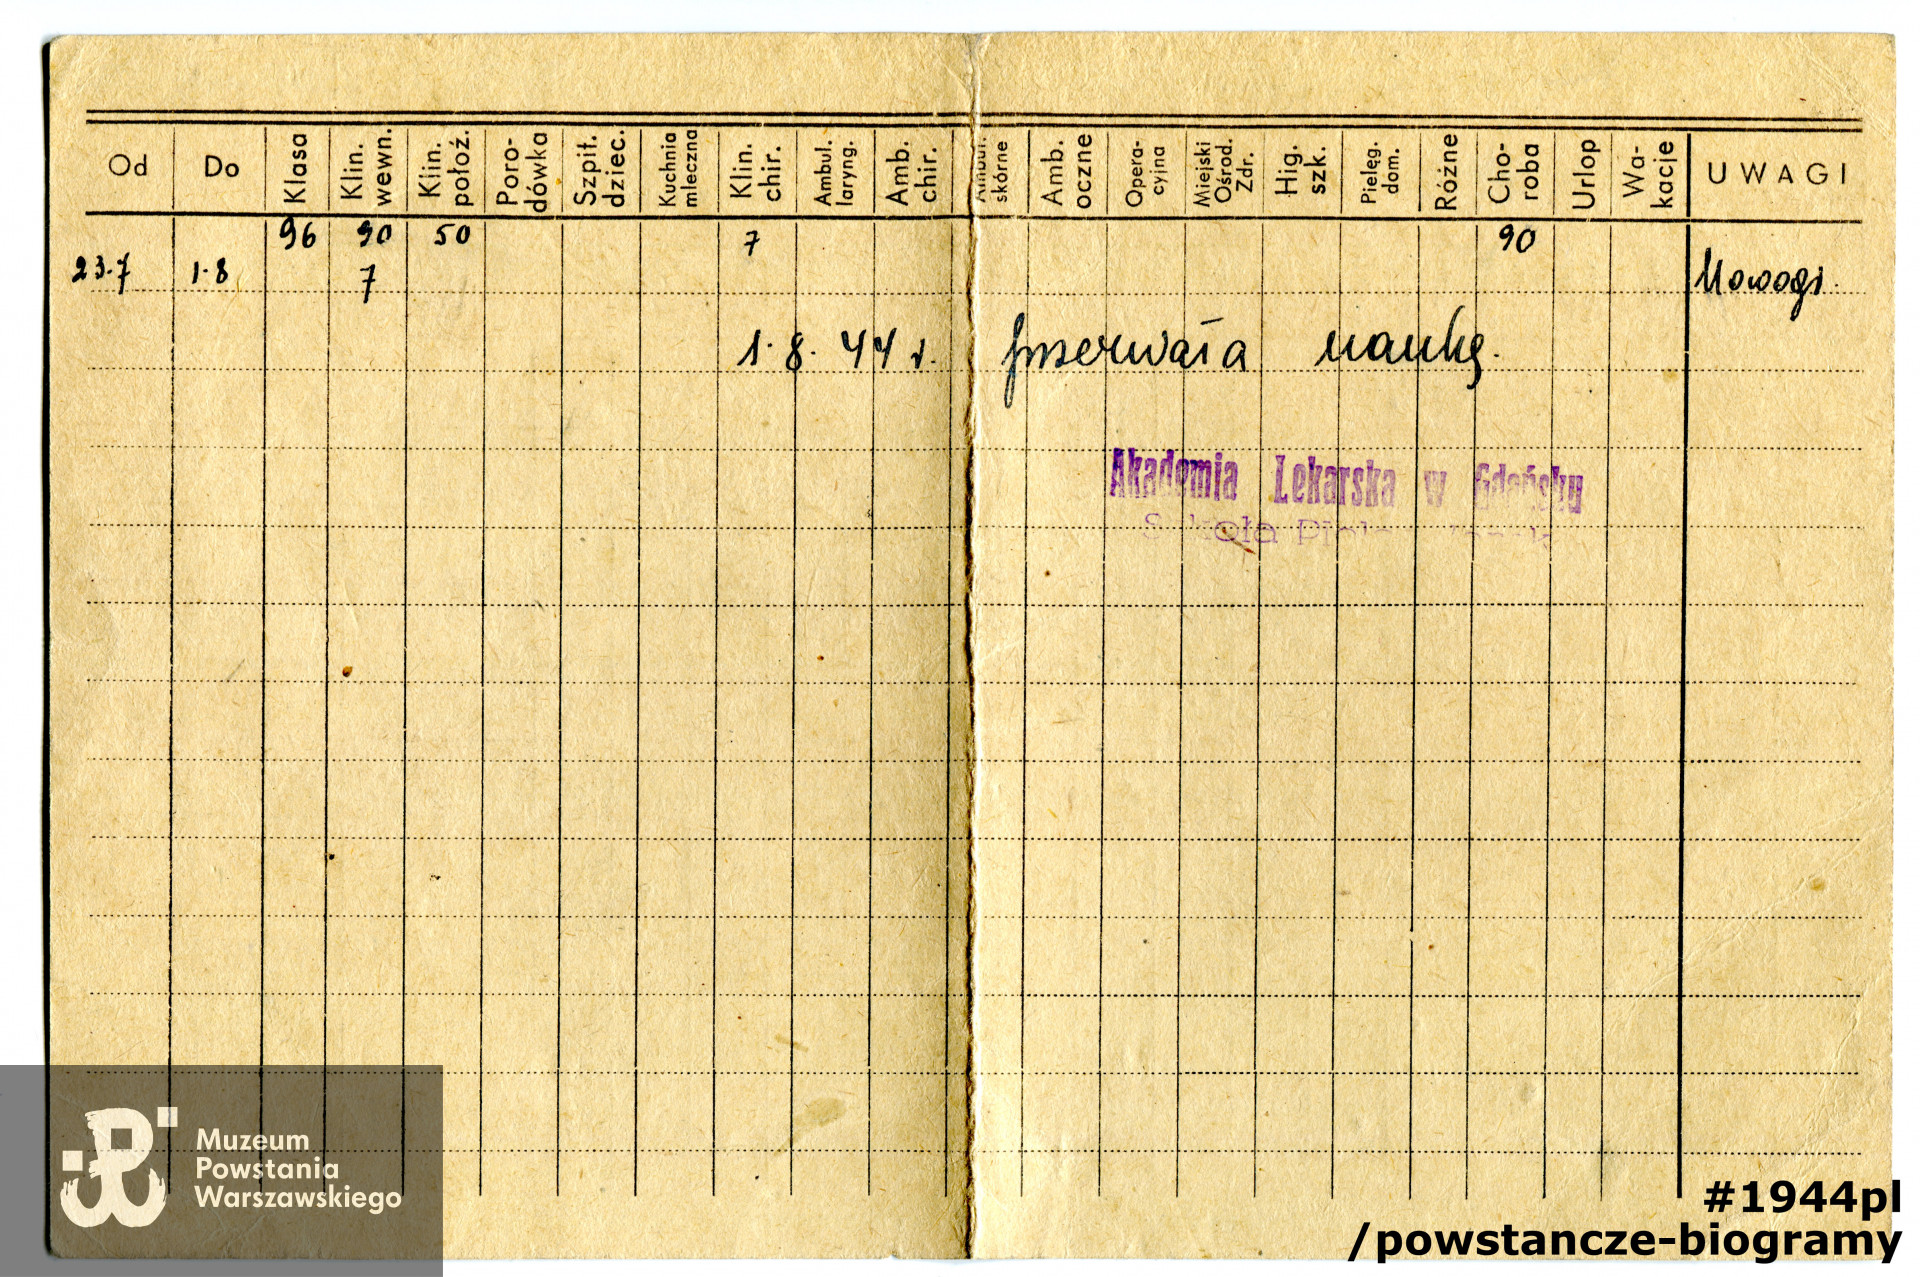 Od Do Klasa Klin. wewn. Klin. położ. Poro-dówka Szpit. dziec. Kuchnia mleczna Klin. chir. Ambul. laryng. Amb. chir. Ambul. skórne Amb. oczne Opera-cyjna Miejski Ośrod. Zdr. Hig. szk. Pielęg. dom. Różne Cho-roba Urlop Wa-kacje UWAGI
96 90 50 7 90
23.7 1.8 7
1. 8. 44 r. przerwała naukę.
Akademia Lekarska w Gdańsku
Szkoła
Muzeum
Powstania
Warszawskiego
#1944pl
/powstancze-biogramy